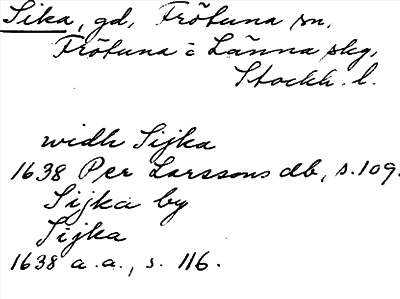 Sika, gd, Frötuna sn,
Frötuna o Länna skg,
Stockh. l.
widh Sijka
1638 Per Larssons db, s. 109.
Sijka by
Sijka
1638 a.a., s. 116.